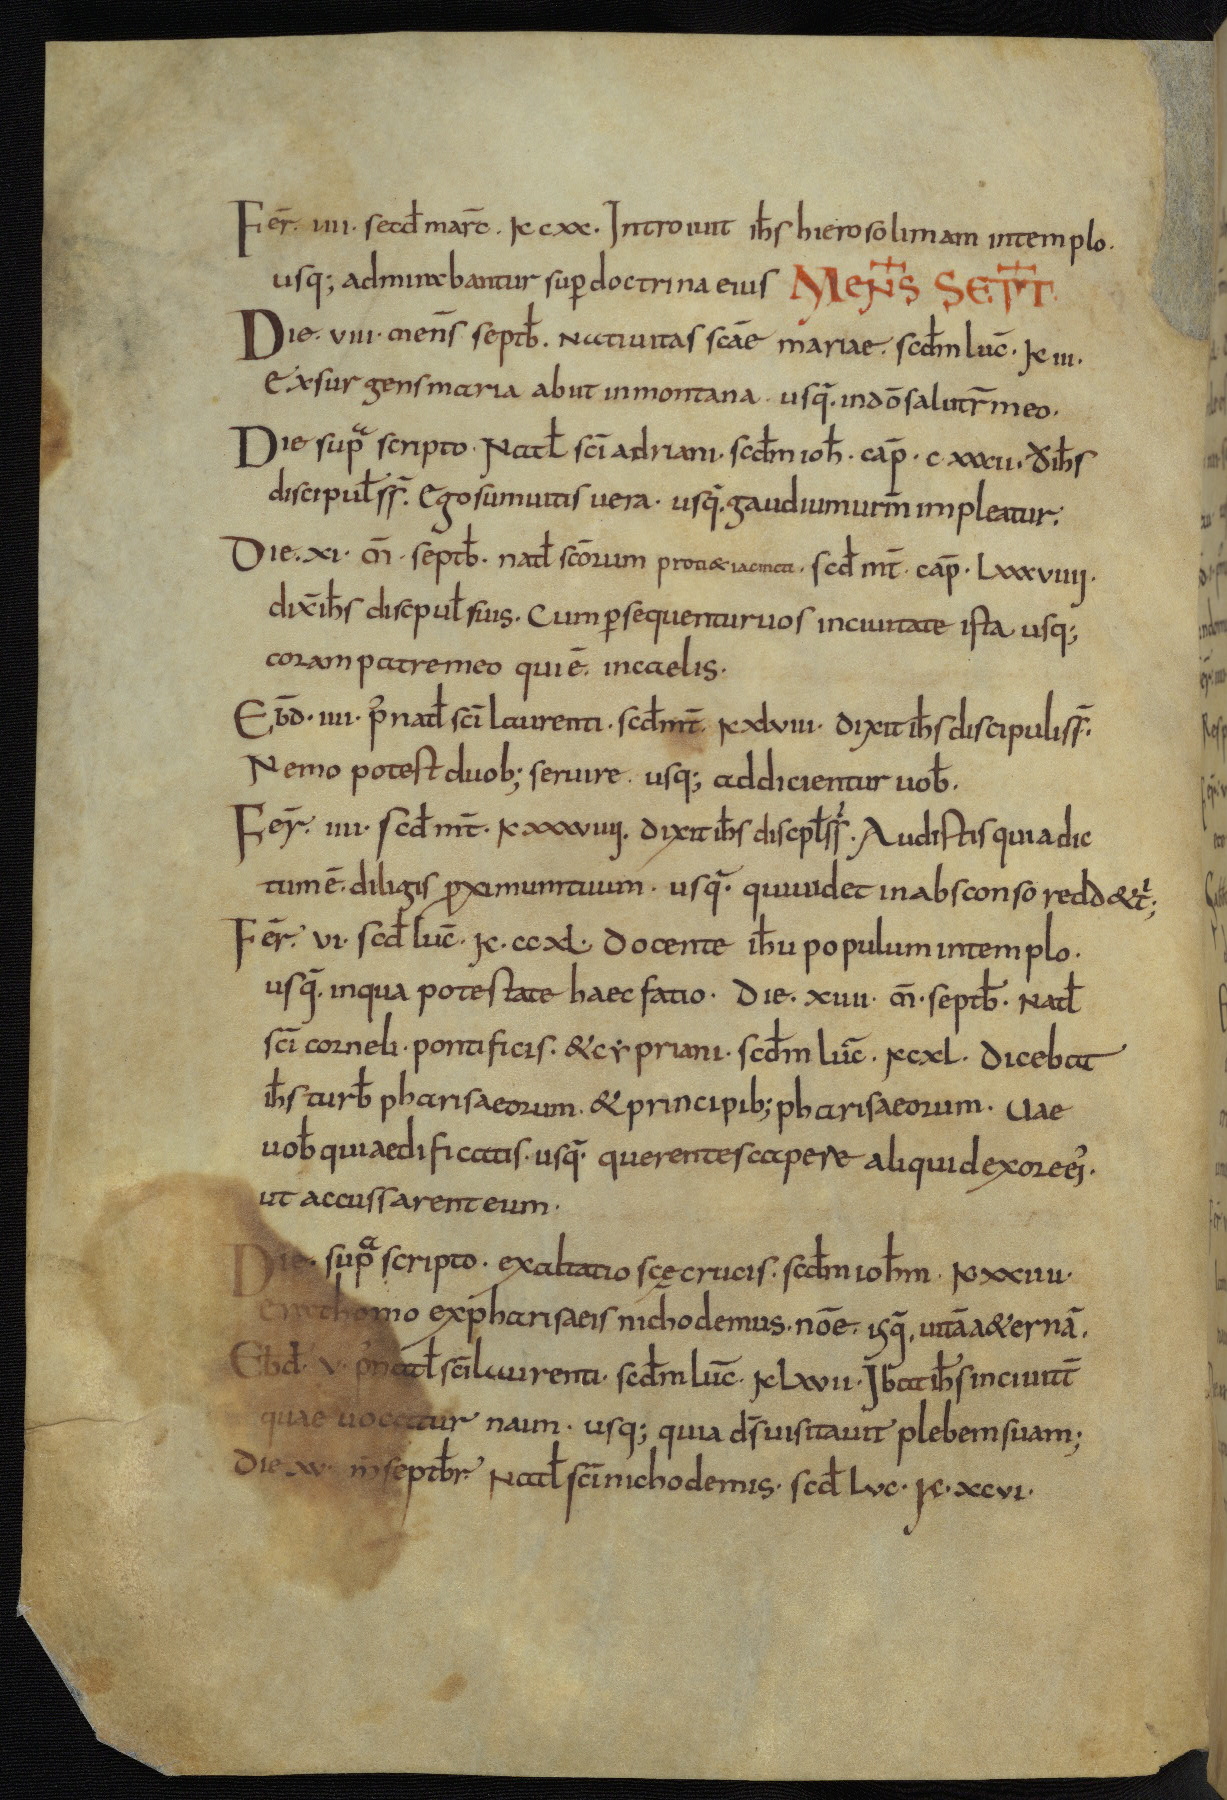 Fer̄. iiii. secd̄ marc̄. K cxx. Introiuit ih̄s hierosolimam in templo.
usq; admirabantur sup doctrina eius MEÑS SEPT̄.
Die. viii. meñs septb̄. Natiuitas scāe mariae. scd̄m luc̄. K iii.
exsurgens maria abiit in montana. usq̄. in dō salutr̄ meo.
Die supª scripto. Natl̄ scī adriani. scd̄m ioh̄. cap̄. cxxxii. d̄ ih̄s
discipul̄ ss̄. Ego sum uitis uera. usq̄. gaudium ur̄m impleatur.
Die. xi. m̄. septb̄. natl̄ scōrum proti & iacincti. scd̄ mt̄. cap̄. Lxxxviiii.
dix̄ ih̄s discipul̄ suis. Cum persequentur uos in ciuitate ista usq;
coram patre meo qui ē. in caelis.
Ebd̄. iiii. p̄ natl̄ scī laurenti. scd̄ mt̄. K xlviii. dixit ih̄s discipulis s̄.
Nemo potest duob; seruire. usq; addicientur uob̄.
Fer̄. iiii. scd̄ mt̄. K xxxviiii. dixit ih̄s discpl̄ ss̄. Audistis quia dic
tum ē. diligis proximum tuum. usq̄. qui uidet in absconso redd&t̄;
Fer̄. vi. scd̄ luc̄. K. ccxl. Docente ih̄u populum in templo.
usq̄. in qua potestate haec fatio. Die. xiiii. m̄. septb̄. Natl̄
scī corneli. pontificis. & cypriani. scd̄m luc̄. K cxl. dicebat
ih̄s turb̄ pharisaeorum. & principib; pharisaeorum. Uae
uob̄ qui aedificatis. usq̄. querentes capere aliquid ex ore ei᾽.
ut accussarent eum.
Die. supª scripto. exaltatio scę crucis. scd̄m ioh̄m. K xxiiii.
erat homo ex pharisaeis nichodemus. nōe. usq̄. uitā a&ernā.
Ebd̄. v. p̄ natl̄ scī laurenti. scd̄m luc̄. K Lxvii. Ib̄at ih̄s in ciuitt̄
quae uocatur naim. usq; quia ds̄ uisitauit plebem suam;
Die xv. m̄ septb̄r. Natl̄ scī nichodemis. scd̄ Luc. K. xcvi.